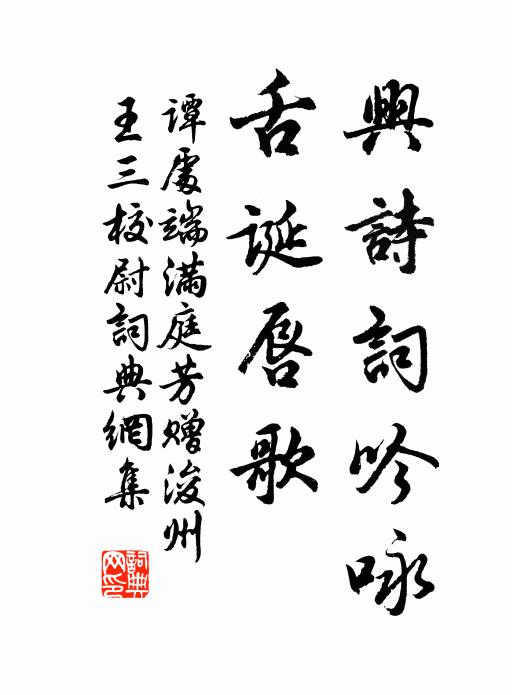 興詩詞吟咏
舌誕唇歌
谭處端满庭芳赠浚州
王三校尉詞典網集
詞典
网印